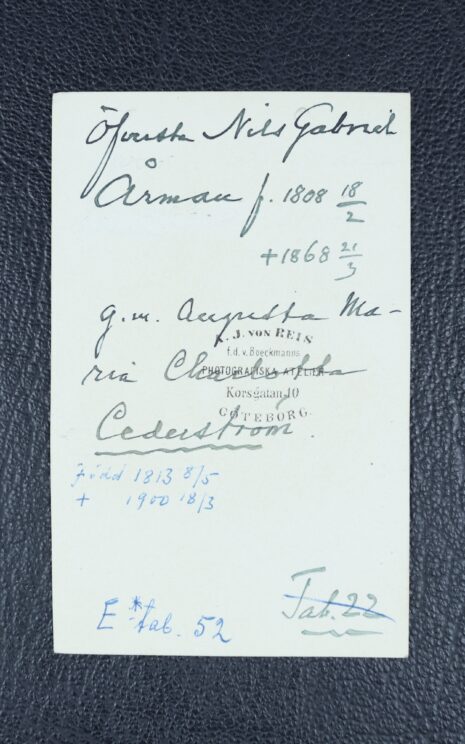 Öfverste Nils Gabriel
Årman f. 1808 18/2
+1868 21/3
g.m. Augusta Ma-
J. VON REIS
f.d. v. Boeckmanns
ria Charlotta
PHOTOGRAFISKA ATELIER
Korsgatan 10
GÖTEBORG.
Cederström.
Född 1813 8/5
+ 1900 18/3
Tab. 22
E * tab. 52